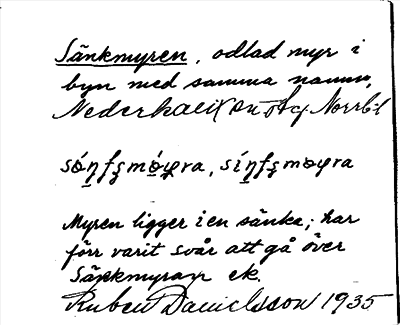 Sänkmyren, odlad myr i
byn med samma namn,
Nederkalix sn o tg Norrb.l
Myren ligger i en sänka; har
förr varit svår att gå över
Sänkmyran ek.
Ruben Danielsson 1935